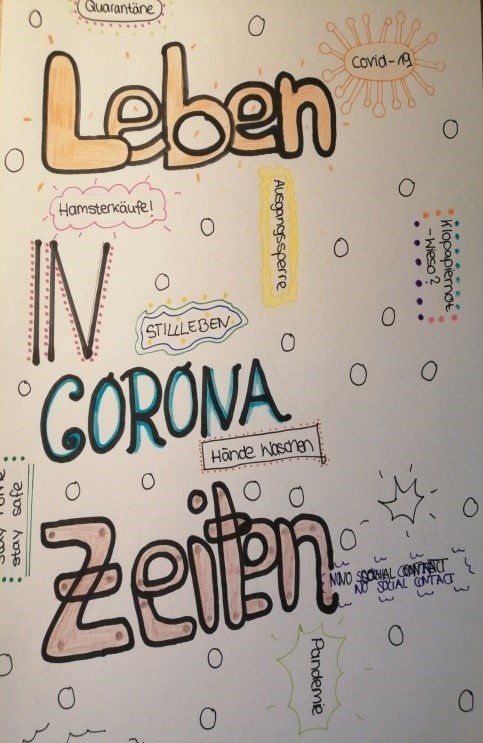 Quarantäne
Covid-19
Leben
Hamsterkäufe!
Ausgangssperre
Klopapiernot
- Wieso?
IN
STILLLEBEN
CORONA
Hände Waschen
stay home
stay safe
Zeiten
NO SOCIAL CONTACT
NO SOCIAL CONTACT
Pandemie